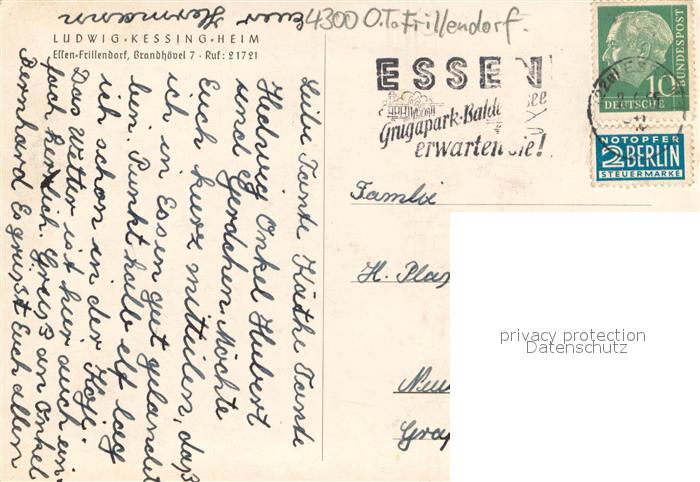 4300 O.T. Frillendorf.
LUDWIG-KESSING-HEIM
Essen-Frillendorf, Brandhövel 7 · Ruf: 21721
Liebe Tante Käthe Tante
Hedwig Onkel Hubert
und Gerdchen. Möchte
Euch kurz mitteilen, daß
ich in Essen gut gelandet
bin. Punkt halb elf lag
ich schon in der Koje.
Das Wetter ist hier auch ein-
fach herrlich. Gruß an Onkel
Bernhard Es grüßt Euch allen
Euer
Hermann
ESSEN
Grugapark-Balde see
erwarten Sie!
10
DEUTSCHE
BUNDESPOST
NOTOPFER
2 BERLIN
STEUERMARKE
Familie
H. Pla
Neu
Gra
privacy protection
Datenschutz